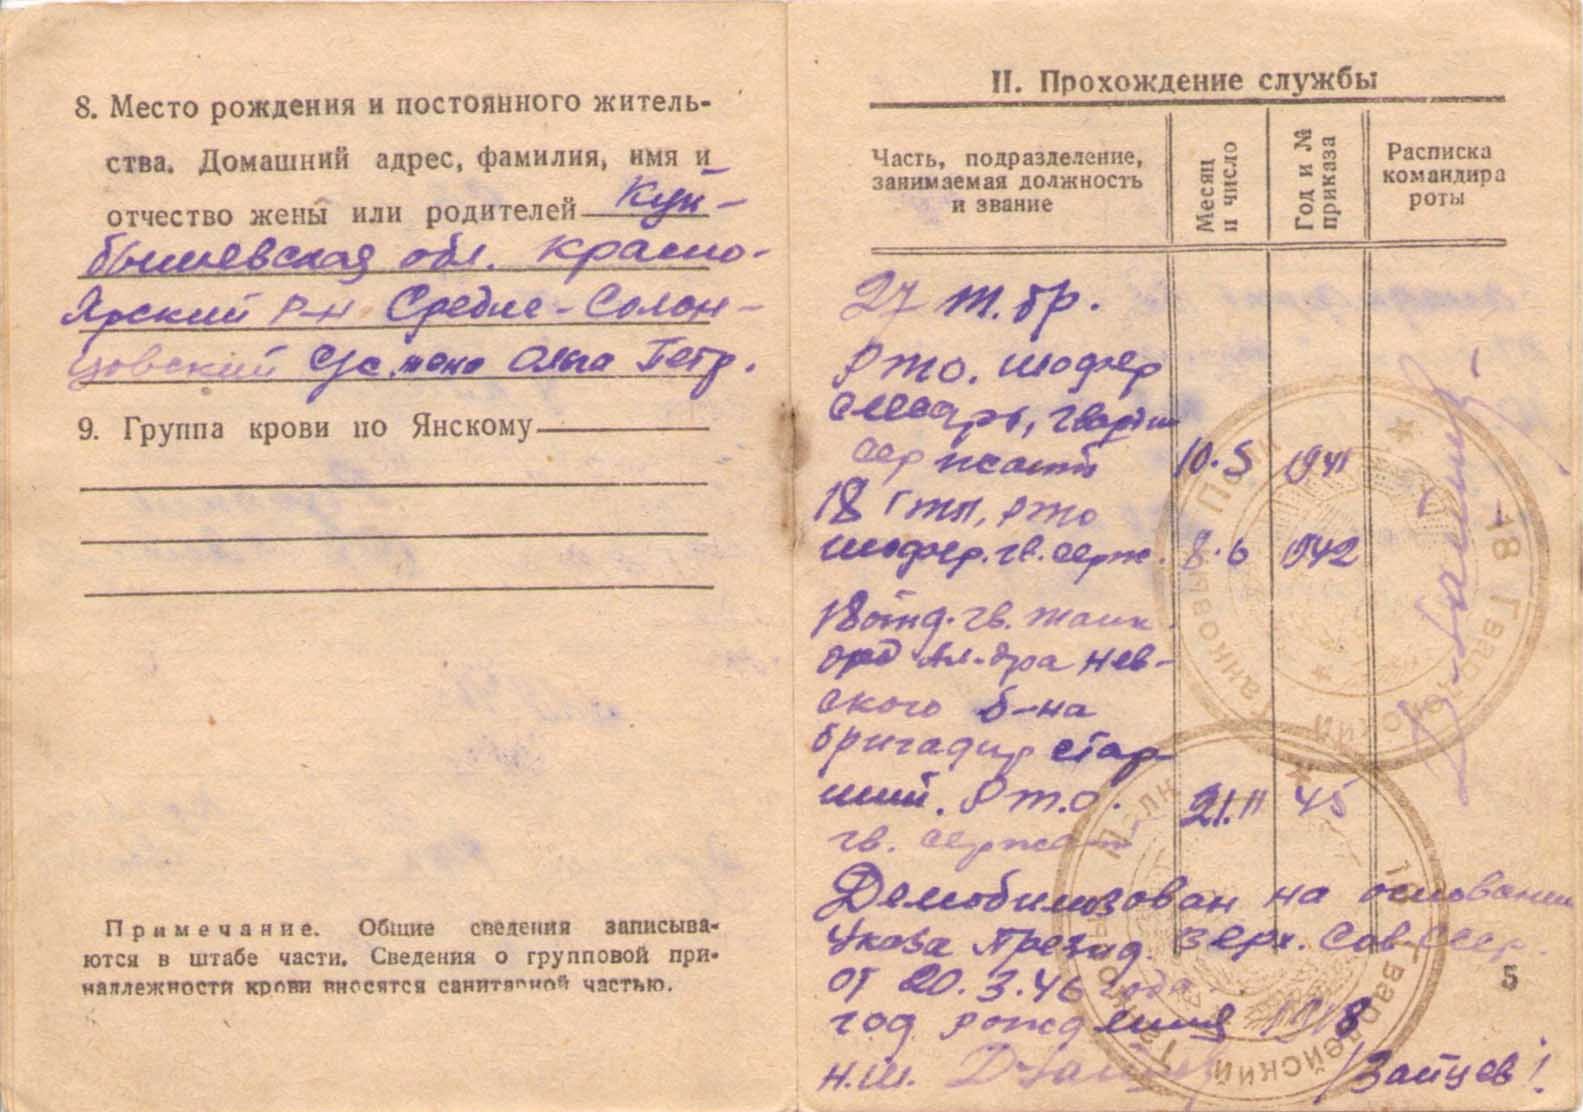 8. Место рождения и постоянного житель-
ства. Домашний адрес, фамилия, имя и
отчество жены или родителей Куй-
бышевская обл. Красно-
Ярский р-н Средне-Солон-
цовский с/с жена Ольга Петр.
9. Группа крови по Янскому
Примечание. Общие сведения записыва-
ются в штабе части. Сведения о групповой при-
надлежности крови вносятся санитарной частью.
II. Прохождение службы
Часть, подразделение,
занимаемая должность
и звание
Месяц
и число
Год и №
приказа
Расписка
командира
роты
27 т.бр.
Рто. шофер
слесарь, гвардии
сержант 10.5 1941
18 гтп, рто
шофер. гв. серж. 8.6 1942
18 отд. гв. танк
орд Ал-дра Нев-
ского б-на
бригадир стар-
ший. Рто.
гв. сержант 21.11 45
Демобилизован на основании
Указа Презид. Верх. Сов СССР.
от 20.3.46 года
год рождения 1918
н.ш. /Зайцев/
18 Гвардейский Танковый Полк
18 Гвардейский Танковый Полк
5